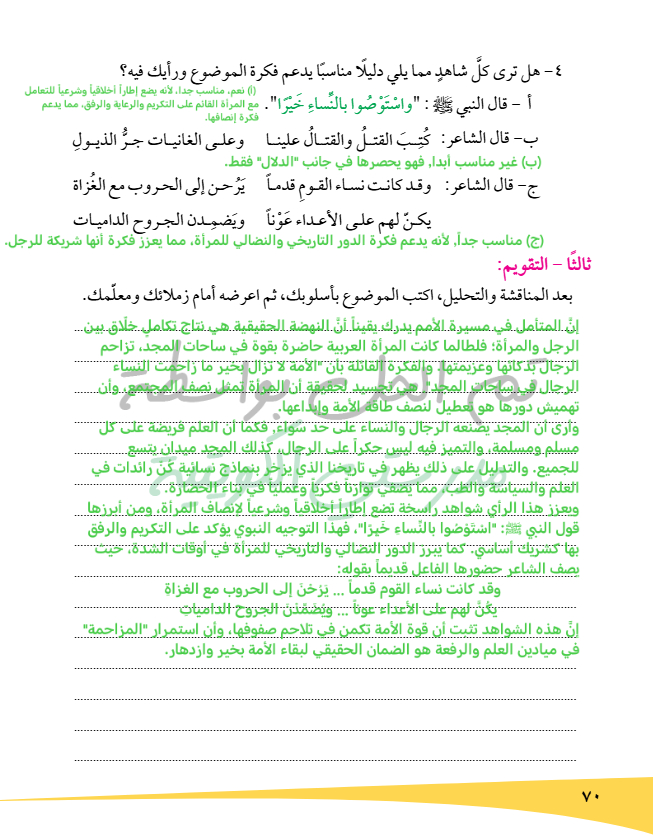 ٤- هل ترى كلَّ شاهدٍ مما يلي دليلًا مناسبًا يدعم فكرة الموضوع ورأيك فيه؟
أ - قال النبي ﷺ : "واسْتَوْصُوا بالنِّساءِ خَيْرًا".
(أ) نعم، مناسب جداً، لأنه يضع إطاراً أخلاقياً وشرعياً للتعامل
مع المرأة القائم على التكريم والرعاية والرفق، مما يدعم
فكرة إنصافها.
ب- قال الشاعر: كُتِـبَ القتـلُ والقتـالُ علينـا وعلـى الغانيـات جـرُّ الذيـولِ
(ب) غير مناسب أبداً, فهو يحصرها في جانب "الدلال" فقط.
ج- قال الشاعر: وقـد كانـت نسـاء القـومِ قدمـاً يَرُحـن إلى الحـروب مع الغُزاة
يكـنّ لهم علـى الأعـداء عَوْناً ويَضمِـدن الجـروح الداميـات
(ج) مناسب جداً, لأنه يدعم فكرة الدور التاريخي والنضالي للمرأة، مما يعزز فكرة أنها شريكة للرجل.
ثالثًا - التقويم:
بعد المناقشة والتحليل، اكتب الموضوع بأسلوبك، ثم اعرضه أمام زملائك ومعلّمك.
إنَّ المتأمل في مسيرة الأمم يدرك يقيناً أنَّ النهضة الحقيقية هي نتاج تكاملٍ خلّاق بين
الرجل والمرأة؛ فلطالما كانت المرأة العربية حاضرة بقوة في ساحات المجد، تزاحم
الرجال بذكائها وعزيمتها. والفكرة القائلة بأن "الأمة لا تزال بخير ما زاحمت النساء
الرجال في ساحات المجد"، هي تجسيد لحقيقة أن المرأة تمثل نصف المجتمع، وأن
تهميش دورها هو تعطيل لنصف طاقة الأمة وإبداعها.
وأرى أن المجد يصنعه الرجال والنساء على حد سواء، فكما أن العلم فريضة على كل
مسلم ومسلمة، والتميز فيه ليس حكراً على الرجال، كذلك المجد ميدان يتسع
للجميع. والتدليل على ذلك يظهر في تاريخنا الذي يزخر بنماذج نسائية كنّ رائدات في
العلم والسياسة والطب، مما يضفي توازناً فكرياً وعملياً في بناء الحضارة.
ويعزز هذا الرأي شواهد راسخة تضع إطاراً أخلاقياً وشرعياً لإنصاف المرأة، ومن أبرزها
قول النبي ﷺ: "اسْتَوْصُوا بالنِّساءِ خَيْرًا"، فهذا التوجيه النبوي يؤكد على التكريم والرفق
بها كشريك أساسي. كما يبرز الدور النضالي والتاريخي للمرأة في أوقات الشدة، حيث
يصف الشاعر حضورها الفاعل قديماً بقوله:
وقد كانت نساء القوم قدماً ... يَرُحْنَ إلى الحروب مع الغزاةِ
يكُنَّ لهم على الأعداء عوناً ... ويَضْمُدْنَ الجروح الدامياتِ
إنَّ هذه الشواهد تثبت أن قوة الأمة تكمن في تلاحم صفوفها، وأن استمرار "المزاحمة"
في ميادين العلم والرفعة هو الضمان الحقيقي لبقاء الأمة بخير وازدهار.
تم الحل بواسطة
مدرستي الكويتية
٧٠